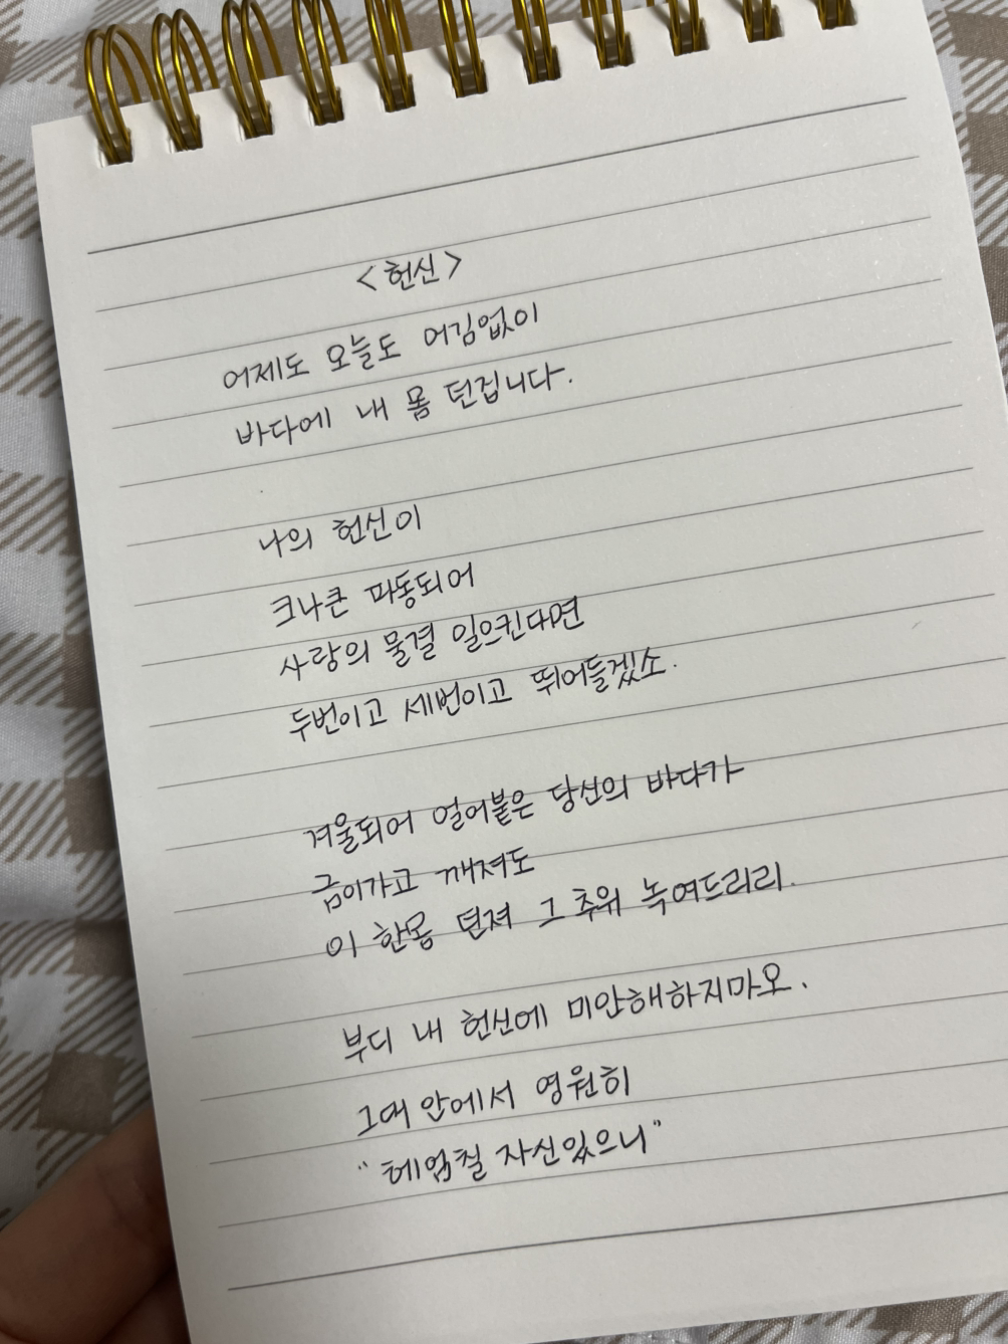 <헌신>
어제도 오늘도 어김없이
바다에 내 몸 던집니다.
나의 헌신이
크나큰 파동되어
사랑의 물결 일으킨다면
두번이고 세번이고 뛰어들겠소.
겨울되어 얼어붙은 당신의 바다가
금이가고 깨져도
이 한몸 던져 그 추위 녹여드리리.
부디 내 헌신에 미안해하지마오.
그대 안에서 영원히
"헤엄칠 자신있으니"